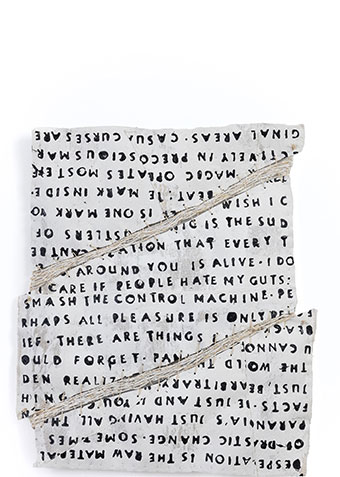 GINAL AREAS. CASUAL CURSES ARE
ECTIVELY IN PRECOCIOUS MAR
MAGIC OPIATES MOST EFF
BEAT: THE MARK INSIDE.
IS ONE MARK YO WISH I C
HUSTLERS OF NG IS THE SUD
ATION THAT EVERY T
AROUND YOU IS ALIVE. I DO
CARE IF PEOPLE HATE MY GUTS:
SMASH THE CONTROL MACHINE. PE
RHAPS ALL PLEASURE IS ONLY RE
IEF. THERE ARE THINGS I
U CANNO
OULD FORGET. PAN THE WORLD TH
DEN REALIZ ARBITRARY. JUST
HIN FACTS. IE. YOU AND I
PARANOIA'S JUST HAVING ALL THE
OF DRASTIC CHANGE. SOME
DESPERATION IS THE RAW MATERIAL